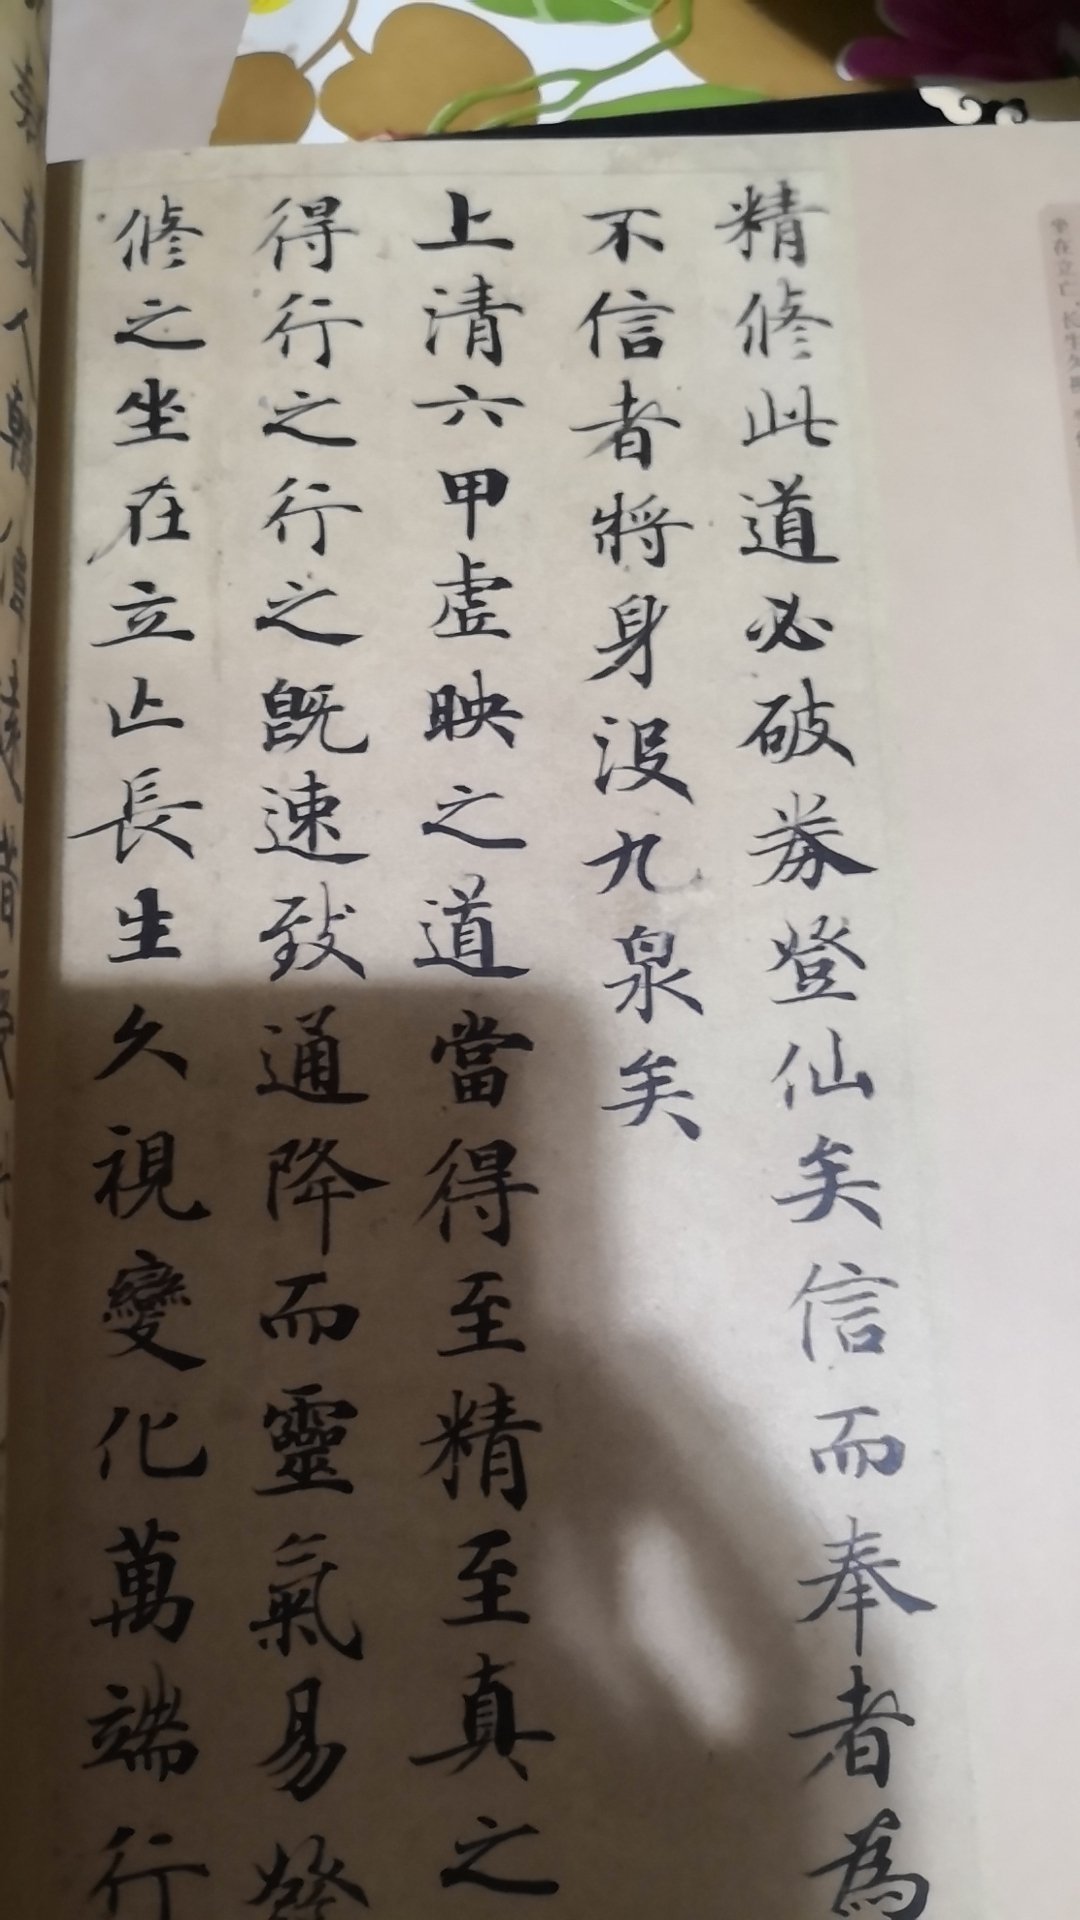 精修此道必破券登仙矣信而奉者爲
不信者將身没九泉矣
上清六甲虛映之道當得至精至真之
得行之行之既速致通降而靈氣易發
修之坐在立亡長生久視變化萬端行
坐在立亡长生久